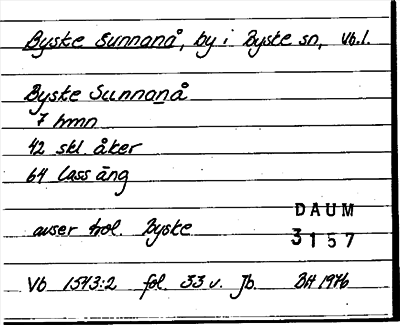 Byske Sunnanå, by i Byske sn, Vb.l.
Byske Sunnanå
7 hmn
42 skl åker
64 lass äng
DAUM
avser trol. Byske
3157
Vb 1543:2 fol 33 v. Jb. BH 1976